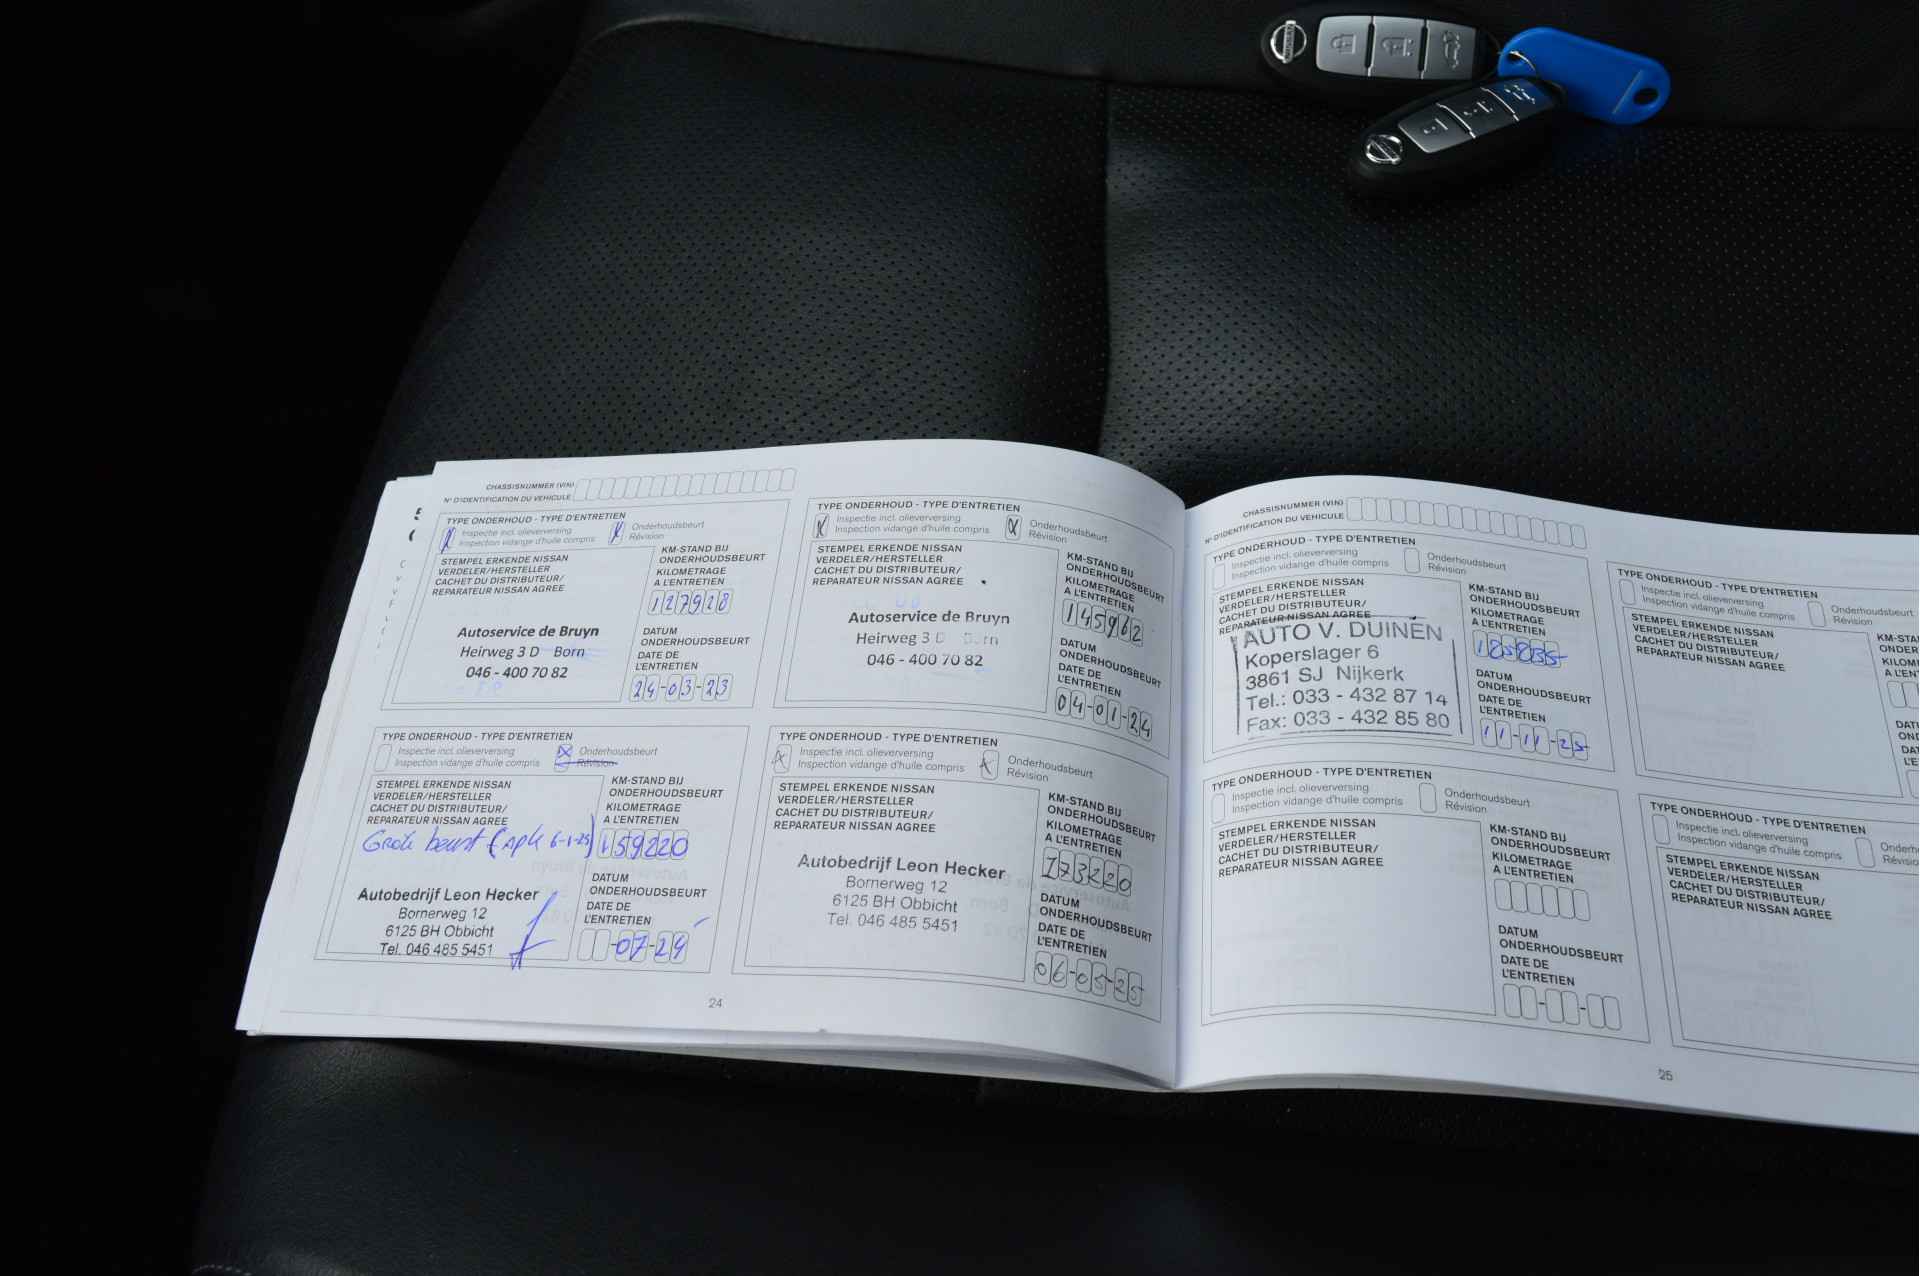 CHASSISNUMMER (VIN)
N° D'IDENTIFICATION DU VEHICULE
TYPE ONDERHOUD - TYPE D'ENTRETIEN
Inspectie incl. olieverversing
Inspection vidange d'huile compris
Onderhoudsbeurt
Révision
STEMPEL ERKENDE NISSAN
VERDELER/HERSTELLER
CACHET DU DISTRIBUTEUR/
REPARATEUR NISSAN AGREE
KM-STAND BIJ
ONDERHOUDSBEURT
KILOMETRAGE
A L'ENTRETIEN
127928
Autoservice de Bruyn
Heirweg 3 D Born
046 - 400 70 82
DATUM
ONDERHOUDSBEURT
DATE DE
L'ENTRETIEN
24-03-23
TYPE ONDERHOUD - TYPE D'ENTRETIEN
Inspectie incl. olieverversing
Inspection vidange d'huile compris
Onderhoudsbeurt
Révision
STEMPEL ERKENDE NISSAN
VERDELER/HERSTELLER
CACHET DU DISTRIBUTEUR/
REPARATEUR NISSAN AGREE
KM-STAND BIJ
ONDERHOUDSBEURT
KILOMETRAGE
A L'ENTRETIEN
145962
Autoservice de Bruyn
Heirweg 3 D Born
046 - 400 70 82
DATUM
ONDERHOUDSBEURT
DATE DE
L'ENTRETIEN
04-01-24
TYPE ONDERHOUD - TYPE D'ENTRETIEN
Inspectie incl. olieverversing
Inspection vidange d'huile compris
Onderhoudsbeurt
Révision
STEMPEL ERKENDE NISSAN
VERDELER/HERSTELLER
CACHET DU DISTRIBUTEUR/
REPARATEUR NISSAN AGREE
Grote beurt (apk 6-1-25)
KM-STAND BIJ
ONDERHOUDSBEURT
KILOMETRAGE
A L'ENTRETIEN
159220
Autobedrijf Leon Hecker
Bornerweg 12
6125 BH Obbicht
Tel. 046 485 5451
DATUM
ONDERHOUDSBEURT
DATE DE
L'ENTRETIEN
-07-24
TYPE ONDERHOUD - TYPE D'ENTRETIEN
Inspectie incl. olieverversing
Inspection vidange d'huile compris
Onderhoudsbeurt
Révision
STEMPEL ERKENDE NISSAN
VERDELER/HERSTELLER
CACHET DU DISTRIBUTEUR/
REPARATEUR NISSAN AGREE
KM-STAND BIJ
ONDERHOUDSBEURT
KILOMETRAGE
A L'ENTRETIEN
173220
Autobedrijf Leon Hecker
Bornerweg 12
6125 BH Obbicht
Tel. 046 485 5451
DATUM
ONDERHOUDSBEURT
DATE DE
L'ENTRETIEN
06-05-25
24
CHASSISNUMMER (VIN)
N° D'IDENTIFICATION DU VEHICULE
TYPE ONDERHOUD - TYPE D'ENTRETIEN
Inspectie incl. olieverversing
Inspection vidange d'huile compris
Onderhoudsbeurt
Révision
STEMPEL ERKENDE NISSAN
VERDELER/HERSTELLER
CACHET DU DISTRIBUTEUR/
REPARATEUR NISSAN AGREE
KM-STAND BIJ
ONDERHOUDSBEURT
KILOMETRAGE
A L'ENTRETIEN
185835
AUTO V. DUINEN
Koperslager 6
3861 SJ Nijkerk
Tel.: 033 - 432 87 14
Fax: 033 - 432 85 80
DATUM
ONDERHOUDSBEURT
DATE DE
L'ENTRETIEN
11-11-25
TYPE ONDERHOUD - TYPE D'ENTRETIEN
Inspectie incl. olieverversing
Inspection vidange d'huile compris
Onderhoudsbeurt
Révision
STEMPEL ERKENDE NISSAN
VERDELER/HERSTELLER
CACHET DU DISTRIBUTEUR/
REPARATEUR NISSAN AGREE
TYPE ONDERHOUD - TYPE D'ENTRETIEN
Inspectie incl. olieverversing
Inspection vidange d'huile compris
Onderhoudsbeurt
Révision
STEMPEL ERKENDE NISSAN
VERDELER/HERSTELLER
CACHET DU DISTRIBUTEUR/
REPARATEUR NISSAN AGREE
KM-STAND BIJ
ONDERHOUDSBEURT
KILOMETRAGE
A L'ENTRETIEN
DATUM
ONDERHOUDSBEURT
DATE DE
L'ENTRETIEN
TYPE ONDERHOUD - TYPE D'ENTRETIEN
Inspectie incl. olieverversing
Inspection vidange d'huile compris
STEMPEL ERKENDE NISSAN
VERDELER/HERSTELLER
CACHET DU DISTRIBUTEUR/
REPARATEUR NISSAN AGREE
25